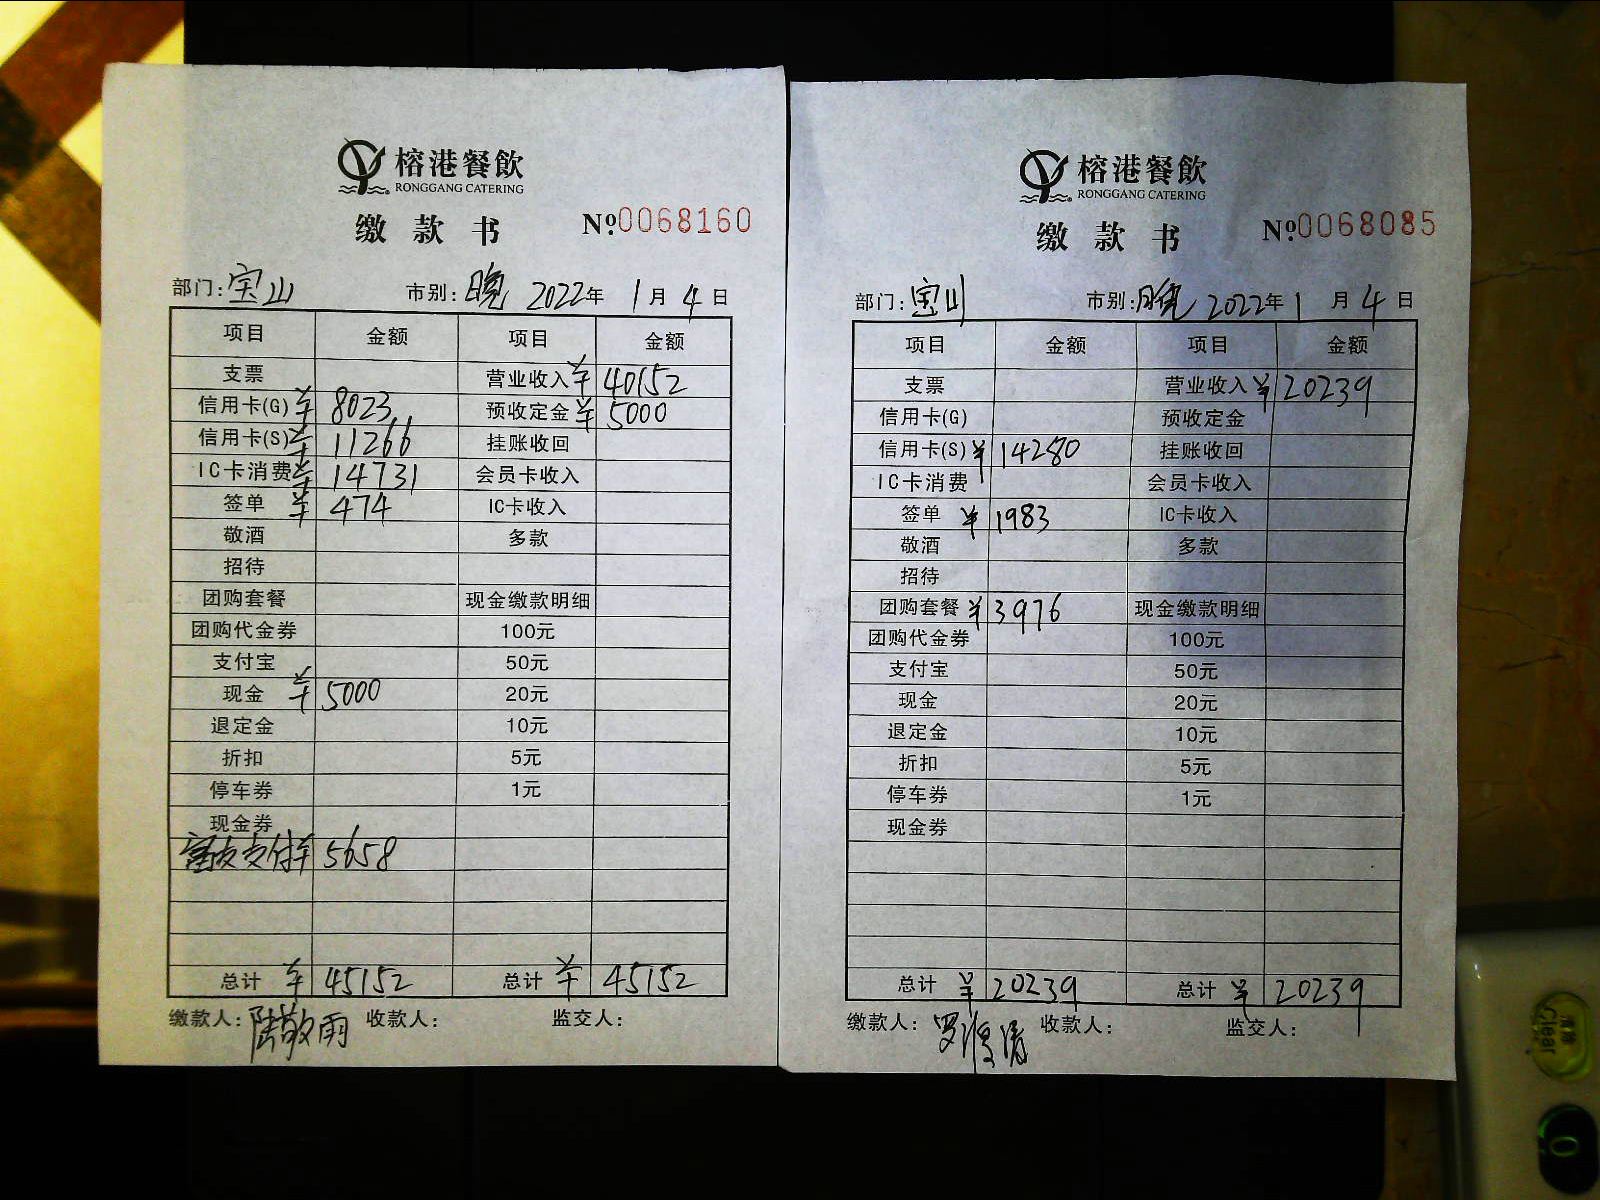 榕港餐飲
RONGGANG CATERING
缴款书 №0068160
部门:宝山 市别:晚 2022年1月4日
项目 金额 项目 金额
支票 营业收入 ¥40152
信用卡(G) ¥8023 预收定金 ¥5000
信用卡(S) ¥11266 挂账收回
IC卡消费 ¥14731 会员卡收入
签单 ¥474 IC卡收入
敬酒 多款
招待
团购套餐 现金缴款明细
团购代金券 100元
支付宝 50元
现金 ¥5000 20元
退定金 10元
折扣 5元
停车券 1元
现金券
支付 ¥5658
总计 ¥45152 总计 ¥45152
缴款人:陆敬雨 收款人: 监交人:
榕港餐飲
RONGGANG CATERING
缴款书 №0068085
部门:宝山 市别:晚 2022年1月4日
项目 金额 项目 金额
支票 营业收入 ¥20239
信用卡(G) 预收定金
信用卡(S) ¥14280 挂账收回
IC卡消费 会员卡收入
签单 ¥1983 IC卡收入
敬酒 多款
招待
团购套餐 ¥3976 现金缴款明细
团购代金券 100元
支付宝 50元
现金 20元
退定金 10元
折扣 5元
停车券 1元
现金券
总计 ¥20239 总计 ¥20239
缴款人:罗 收款人: 监交人:
Clear
0